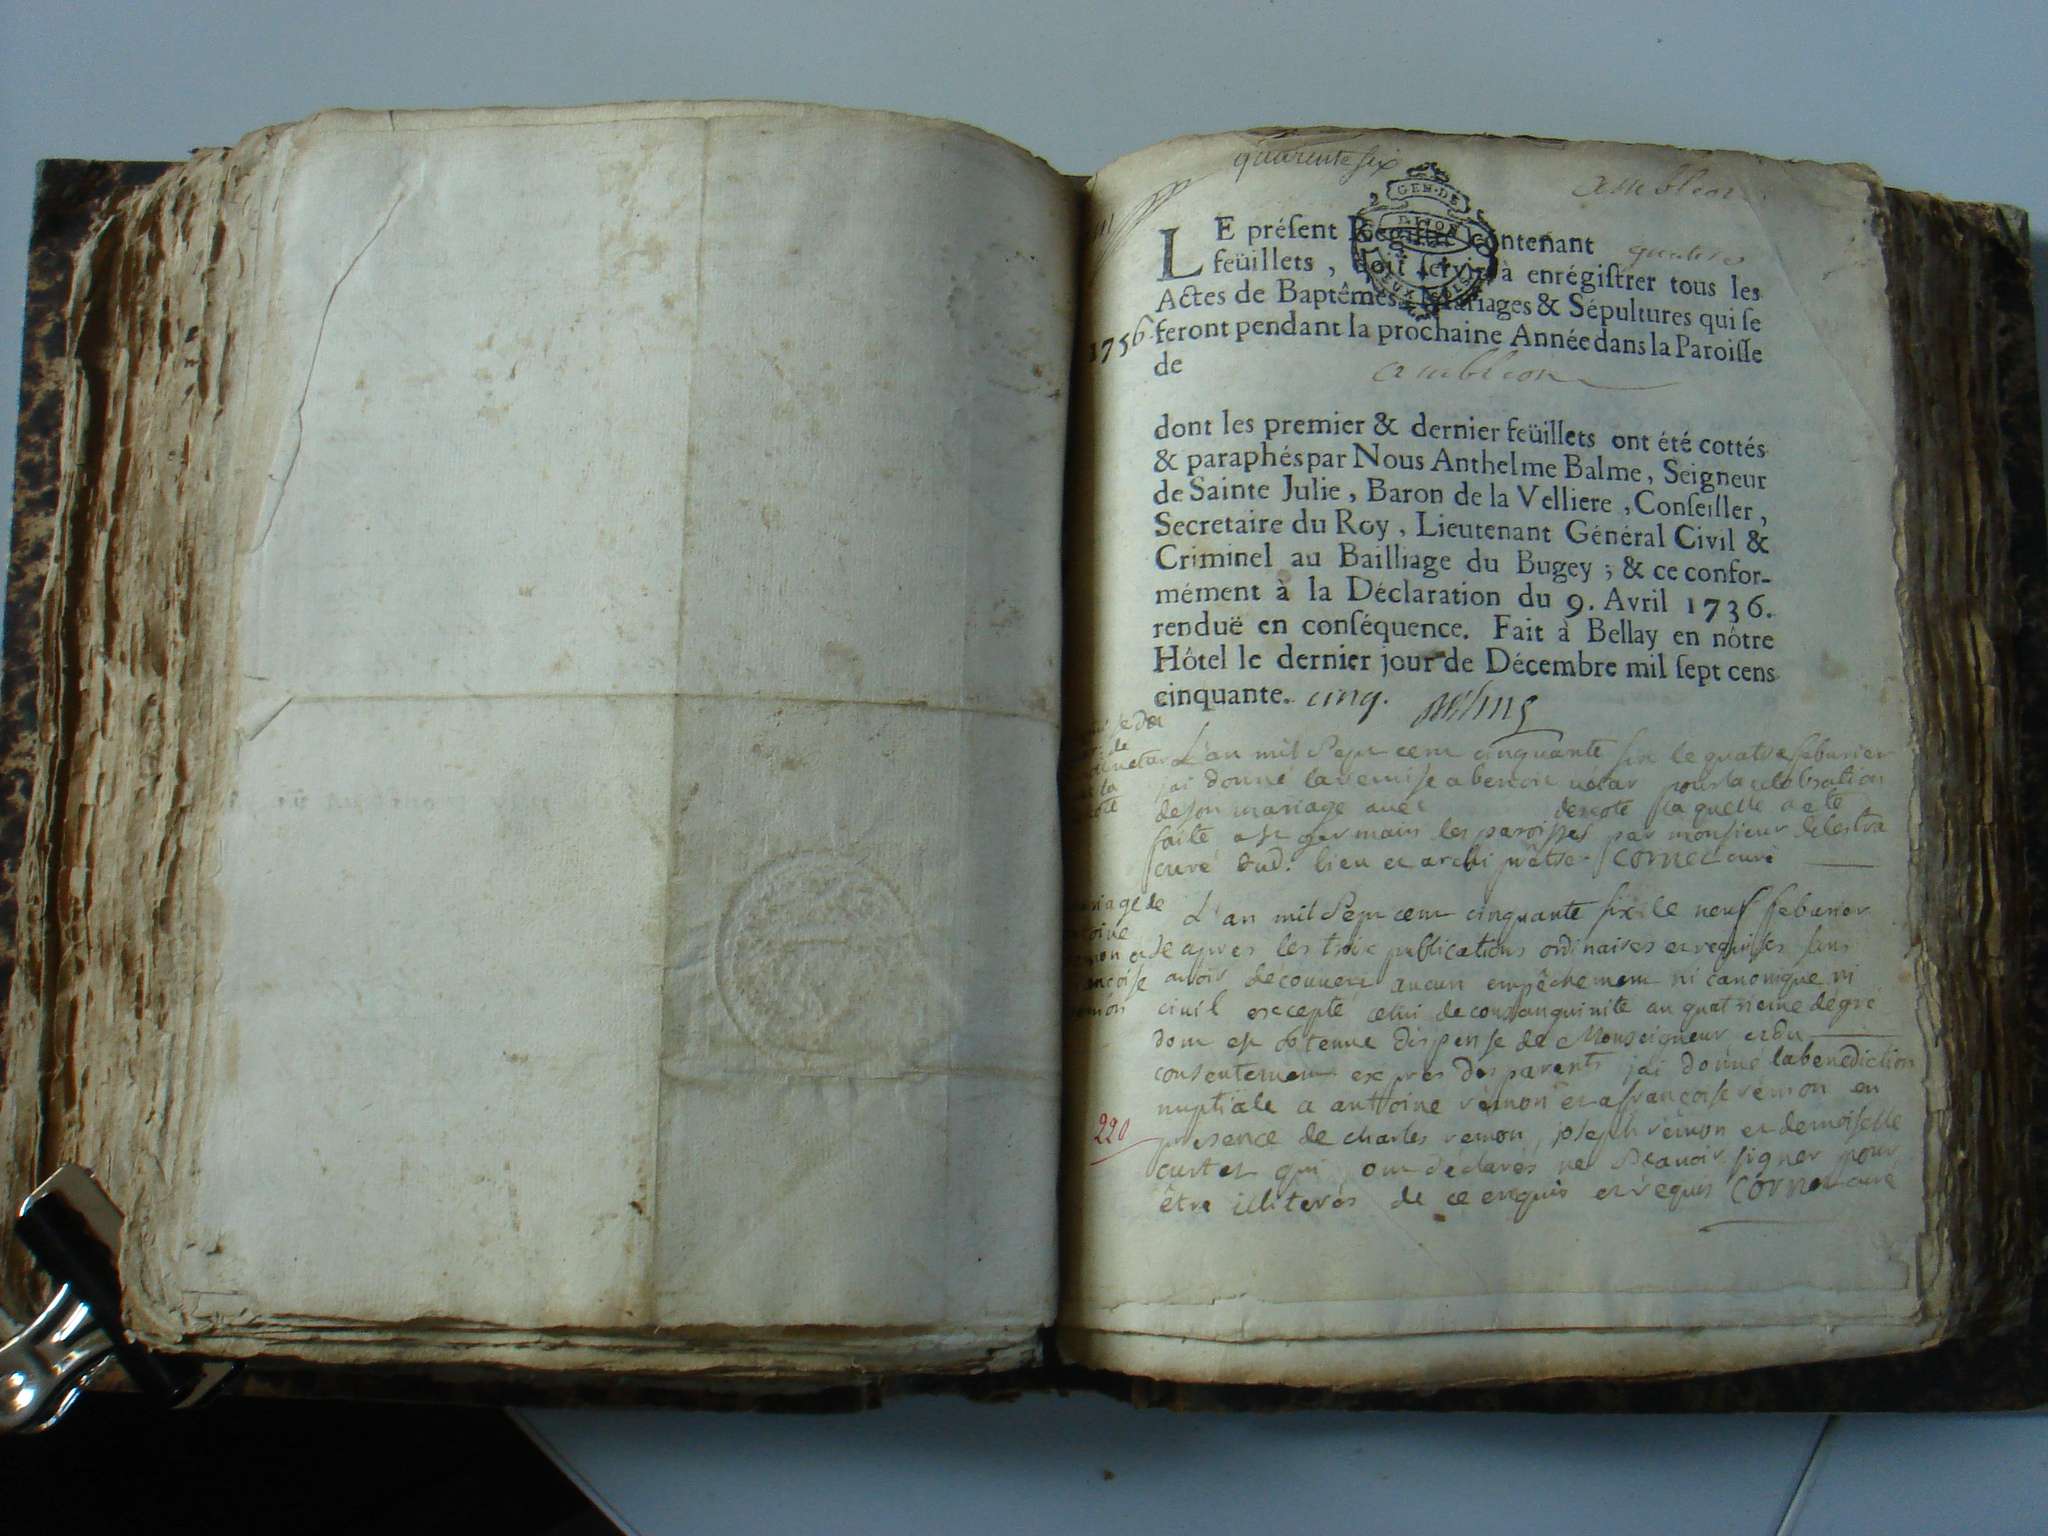 quarente six
Ambleon
GEN. DE
DIJON
LE préſent Regiſtre contenant quatre
feüillets, doit ſervir à enrégiſtrer tous les
Actes de Baptêmes, Mariages & Sépultures qui ſe
feront pendant la prochaine Année dans la Paroiſſe
1756
de Ambleon
dont les premier & dernier feüillets ont été cottés
& paraphés par Nous Anthelme Balme, Seigneur
de Sainte Julie, Baron de la Velliere, Conſeiller,
Secretaire du Roy, Lieutenant Général Civil &
Criminel au Bailliage du Bugey; & ce confor-
mément à la Déclaration du 9. Avril 1736.
renduë en conſéquence. Fait à Bellay en nôtre
Hôtel le dernier jour de Décembre mil ſept cens
cinquante. cinq.
L'an mil Sept cent cinquante six le quatre feburier
jai donné la remise a benoit pour la celebration
de son mariage avec laquelle a ete
faite a st germain les paroisses par monsieur
curé dud. lieu et archi prêtre. Cornet curé
L'an mil Sept cent cinquante six le neuf feburier
apres les trois publications ordinaires et requises sans
avoir découvert aucun empêchement ni canonique ni
civil excepté celui de consanguinité au quatrieme degré
dont est obtenue dispense de Monseigneur et du
consentement expres des parents jai donné la benediction
nuptiale a anttoine rémon et a françoise rémon en
presence de charles remon, joseph rémon et demoiselle
curtet qui ont déclarés ne Scavoir signer pour
être illiterés de ce enquis et requis Cornet curé
220